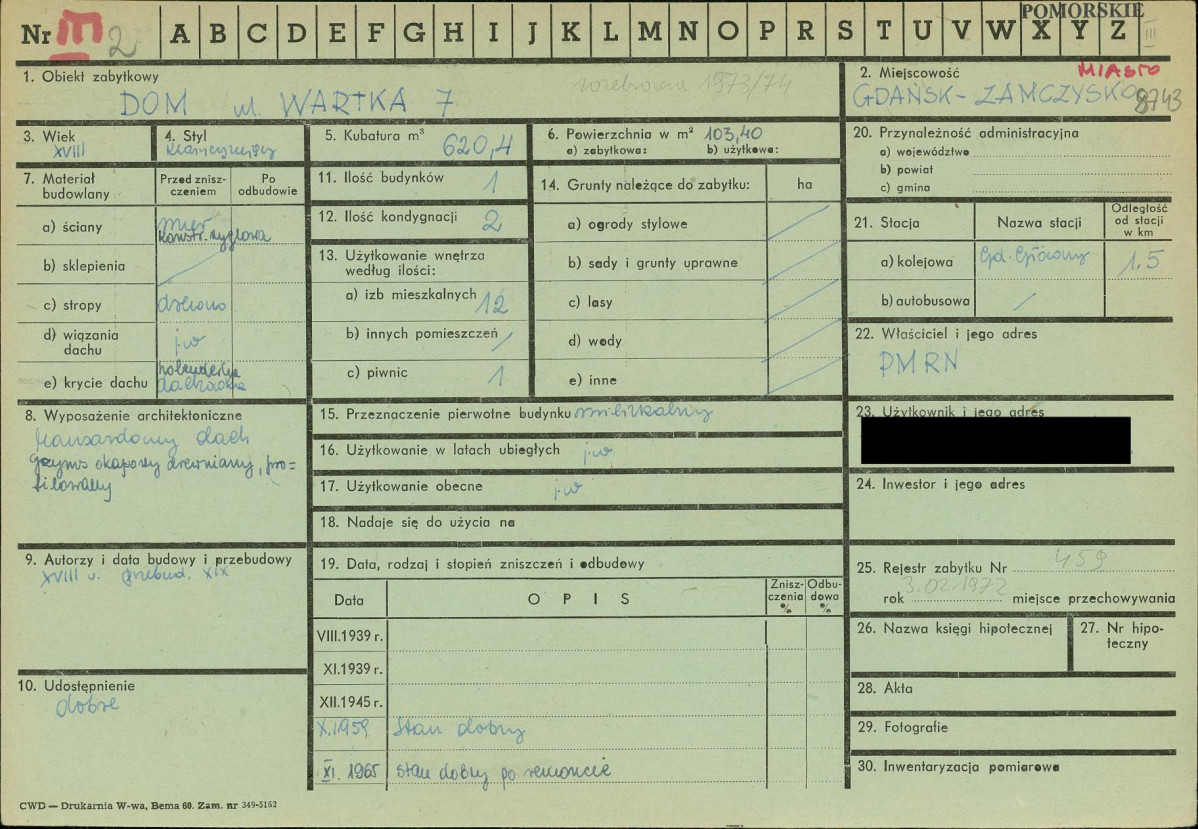 POMORSKIE
Nr III 2 A B C D E F G H I J K L M N O P R S T U V W X Y Z III
1. Obiekt zabytkowy
rozebrane 1973/74
DOM ul. WARTKA 7
2. Miejscowość MIASTO
GDAŃSK - ZAMCZYSKO 8743
3. Wiek
XVIII
4. Styl
klasycyzujący
5. Kubatura m³ 620,4
6. Powierzchnia w m² 103,40
a) zabytkowa: b) użytkowa:
7. Materiał budowlany
Przed znisz-
czeniem
Po
odbudowie
a) ściany mur
konstr. ryglowa
b) sklepienia /
c) stropy drewno
d) wiązania
dachu j.w
e) krycie dachu holenderka
dachówka
8. Wyposażenie architektoniczne
mansardowy dach
gzyms okapowy drewniany, pro=
filowany
9. Autorzy i data budowy i przebudowy
XVIII w. przebud. XIX
10. Udostępnienie
dobre
11. Ilość budynków 1
12. Ilość kondygnacji 2
13. Użytkowanie wnętrza
według ilości:
a) izb mieszkalnych 12
b) innych pomieszczeń /
c) piwnic 1
14. Grunty należące do zabytku: ha
a) ogrody stylowe /
b) sady i grunty uprawne /
c) lasy /
d) wody /
e) inne /
15. Przeznaczenie pierwotne budynku mieszkalny
16. Użytkowanie w latach ubiegłych j.w
17. Użytkowanie obecne j.w
18. Nadaje się do użycia na
19. Data, rodzaj i stopień zniszczeń i odbudowy
Data
OPIS
Znisz-
czenia
%
Odbu-
dowa
%
VIII.1939 r.
XI.1939 r.
XII.1945 r.
X.1959 Stan dobry
XI. 1965 stan dobry po remoncie
20. Przynależność administracyjna
a) województwo
b) powiat
c) gmina
21. Stacja
Nazwa stacji
Odległość
od stacji
w km
a) kolejowa Gd. Główny 1.5
b) autobusowa /
22. Właściciel i jego adres
PMRN
23. Użytkownik i jego adres
24. Inwestor i jego adres
25. Rejestr zabytku Nr 459
rok 3.02.1972 miejsce przechowywania
26. Nazwa księgi hipotecznej
27. Nr hipo-
teczny
28. Akta
29. Fotografie
30. Inwentaryzacja pomiarowa
CWD — Drukarnia W-wa, Bema 60. Zam. nr 349-5162